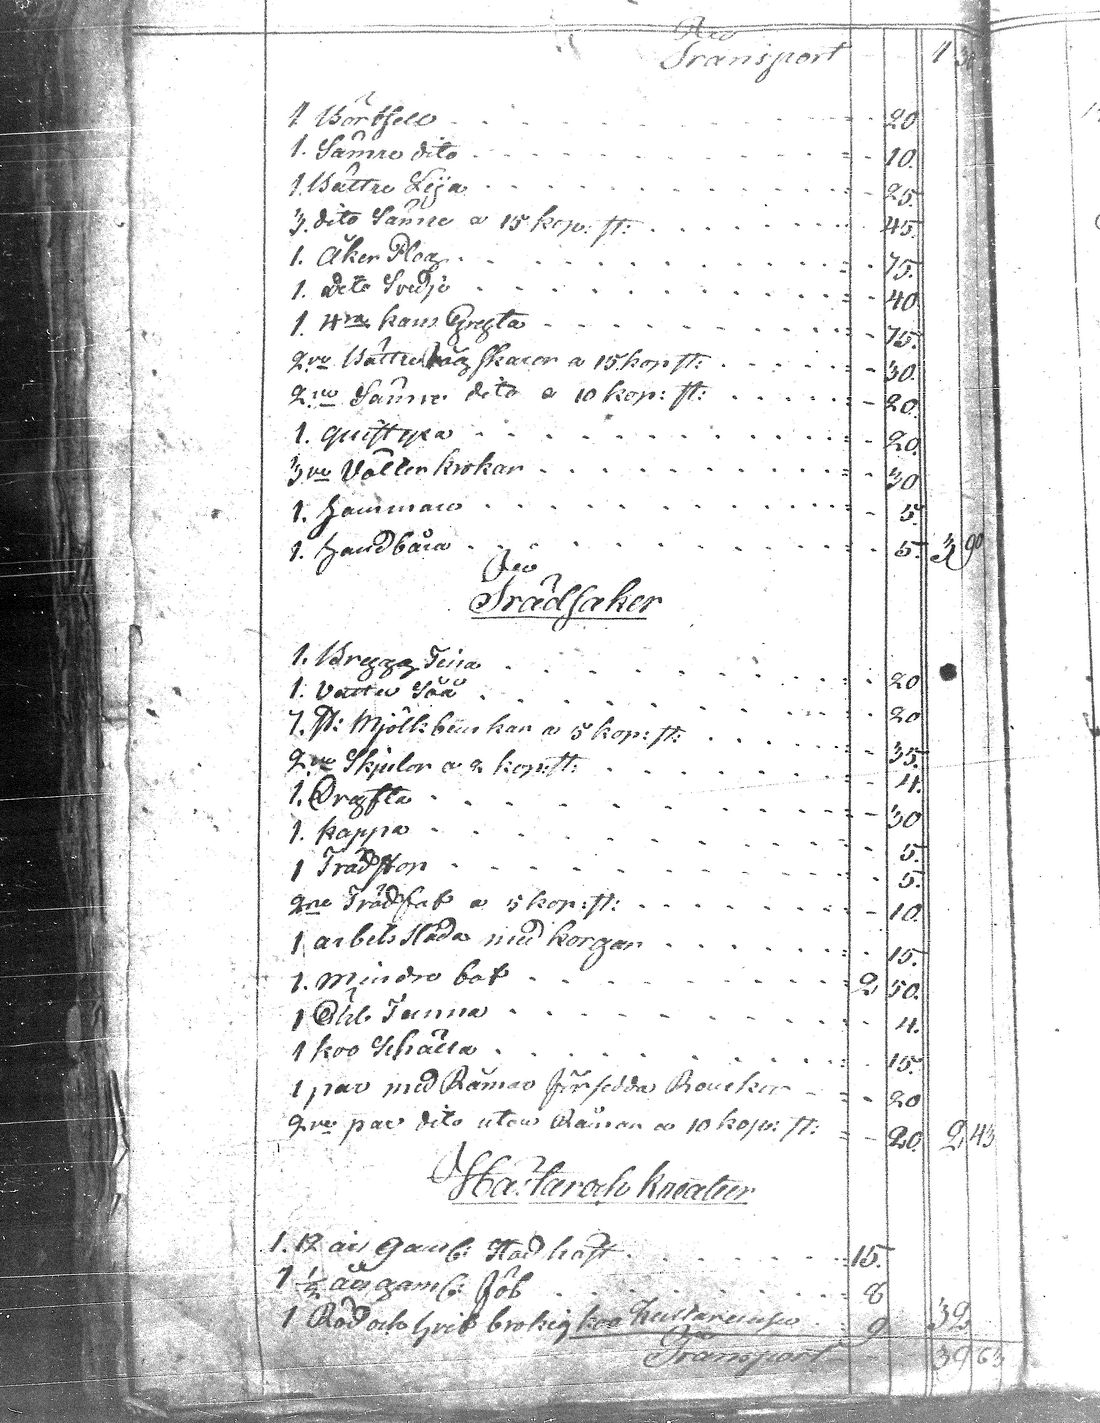 Transport 1 30
1 Börtsele 20
1. Sämre dito 10.
1. Bättre Lija 25.
3. dito Sämre a 15 kop: st: 45.
1. Åker Plog 75.
1. dito Svedje 40
1. 4ra kans Gregta 75.
2ne Bättre skaror a 15 kop st: 30.
2ne Sämre dito a 10 kop: st: 20.
1. quistyxa 20
3ne Välterkrokar 30
1. Hammare 5.
1. Handbåra 5. 3 90
Trädsaker
1. Brygg Tina 20
1. Vattu Såå 20
7. st: Mjölkbunkar a 5 kop: st: 35.
2ne Skjulor a 2 kop: st: 4.
1. Drogsta 30
1. kappa 5.
1 Trädstop 5.
2ne Trädfat a 5 kop: st: 10.
1 arbets släda med korgar 15.
1. mindre båt 2 50.
1 Öhls Tunna 4.
1 koo Schälla 15.
1 par med Rämar försedda 20
2ne par dito utan Rämar a 10 kop: st: 20. 2 43
Hästar och kreatur
1. 12 års gam: Stod häst 15.
1 1/2 års gam: Föl 8
1 Röd och hvit brokig koo 9 32
Transport 39 63